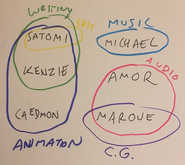 WRITING
EDIT
SATOMI
KENZIE
CAEDMON
ANIMATON
MUSIC
MICHAEL
AUDIO
AMOR
MAROUE
C.G.